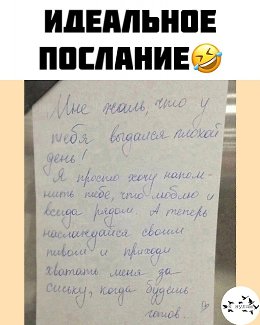 ИДЕАЛЬНОЕ
ПОСЛАНИЕ🤣
Мне жаль, что у
тебя выдался плохой
день!
Я просто хочу напом-
нить тебе, что люблю и
всегда рядом. А теперь
наслаждайся своим
пивом и приходи
хватать меня за
сиську, когда будешь
готов.